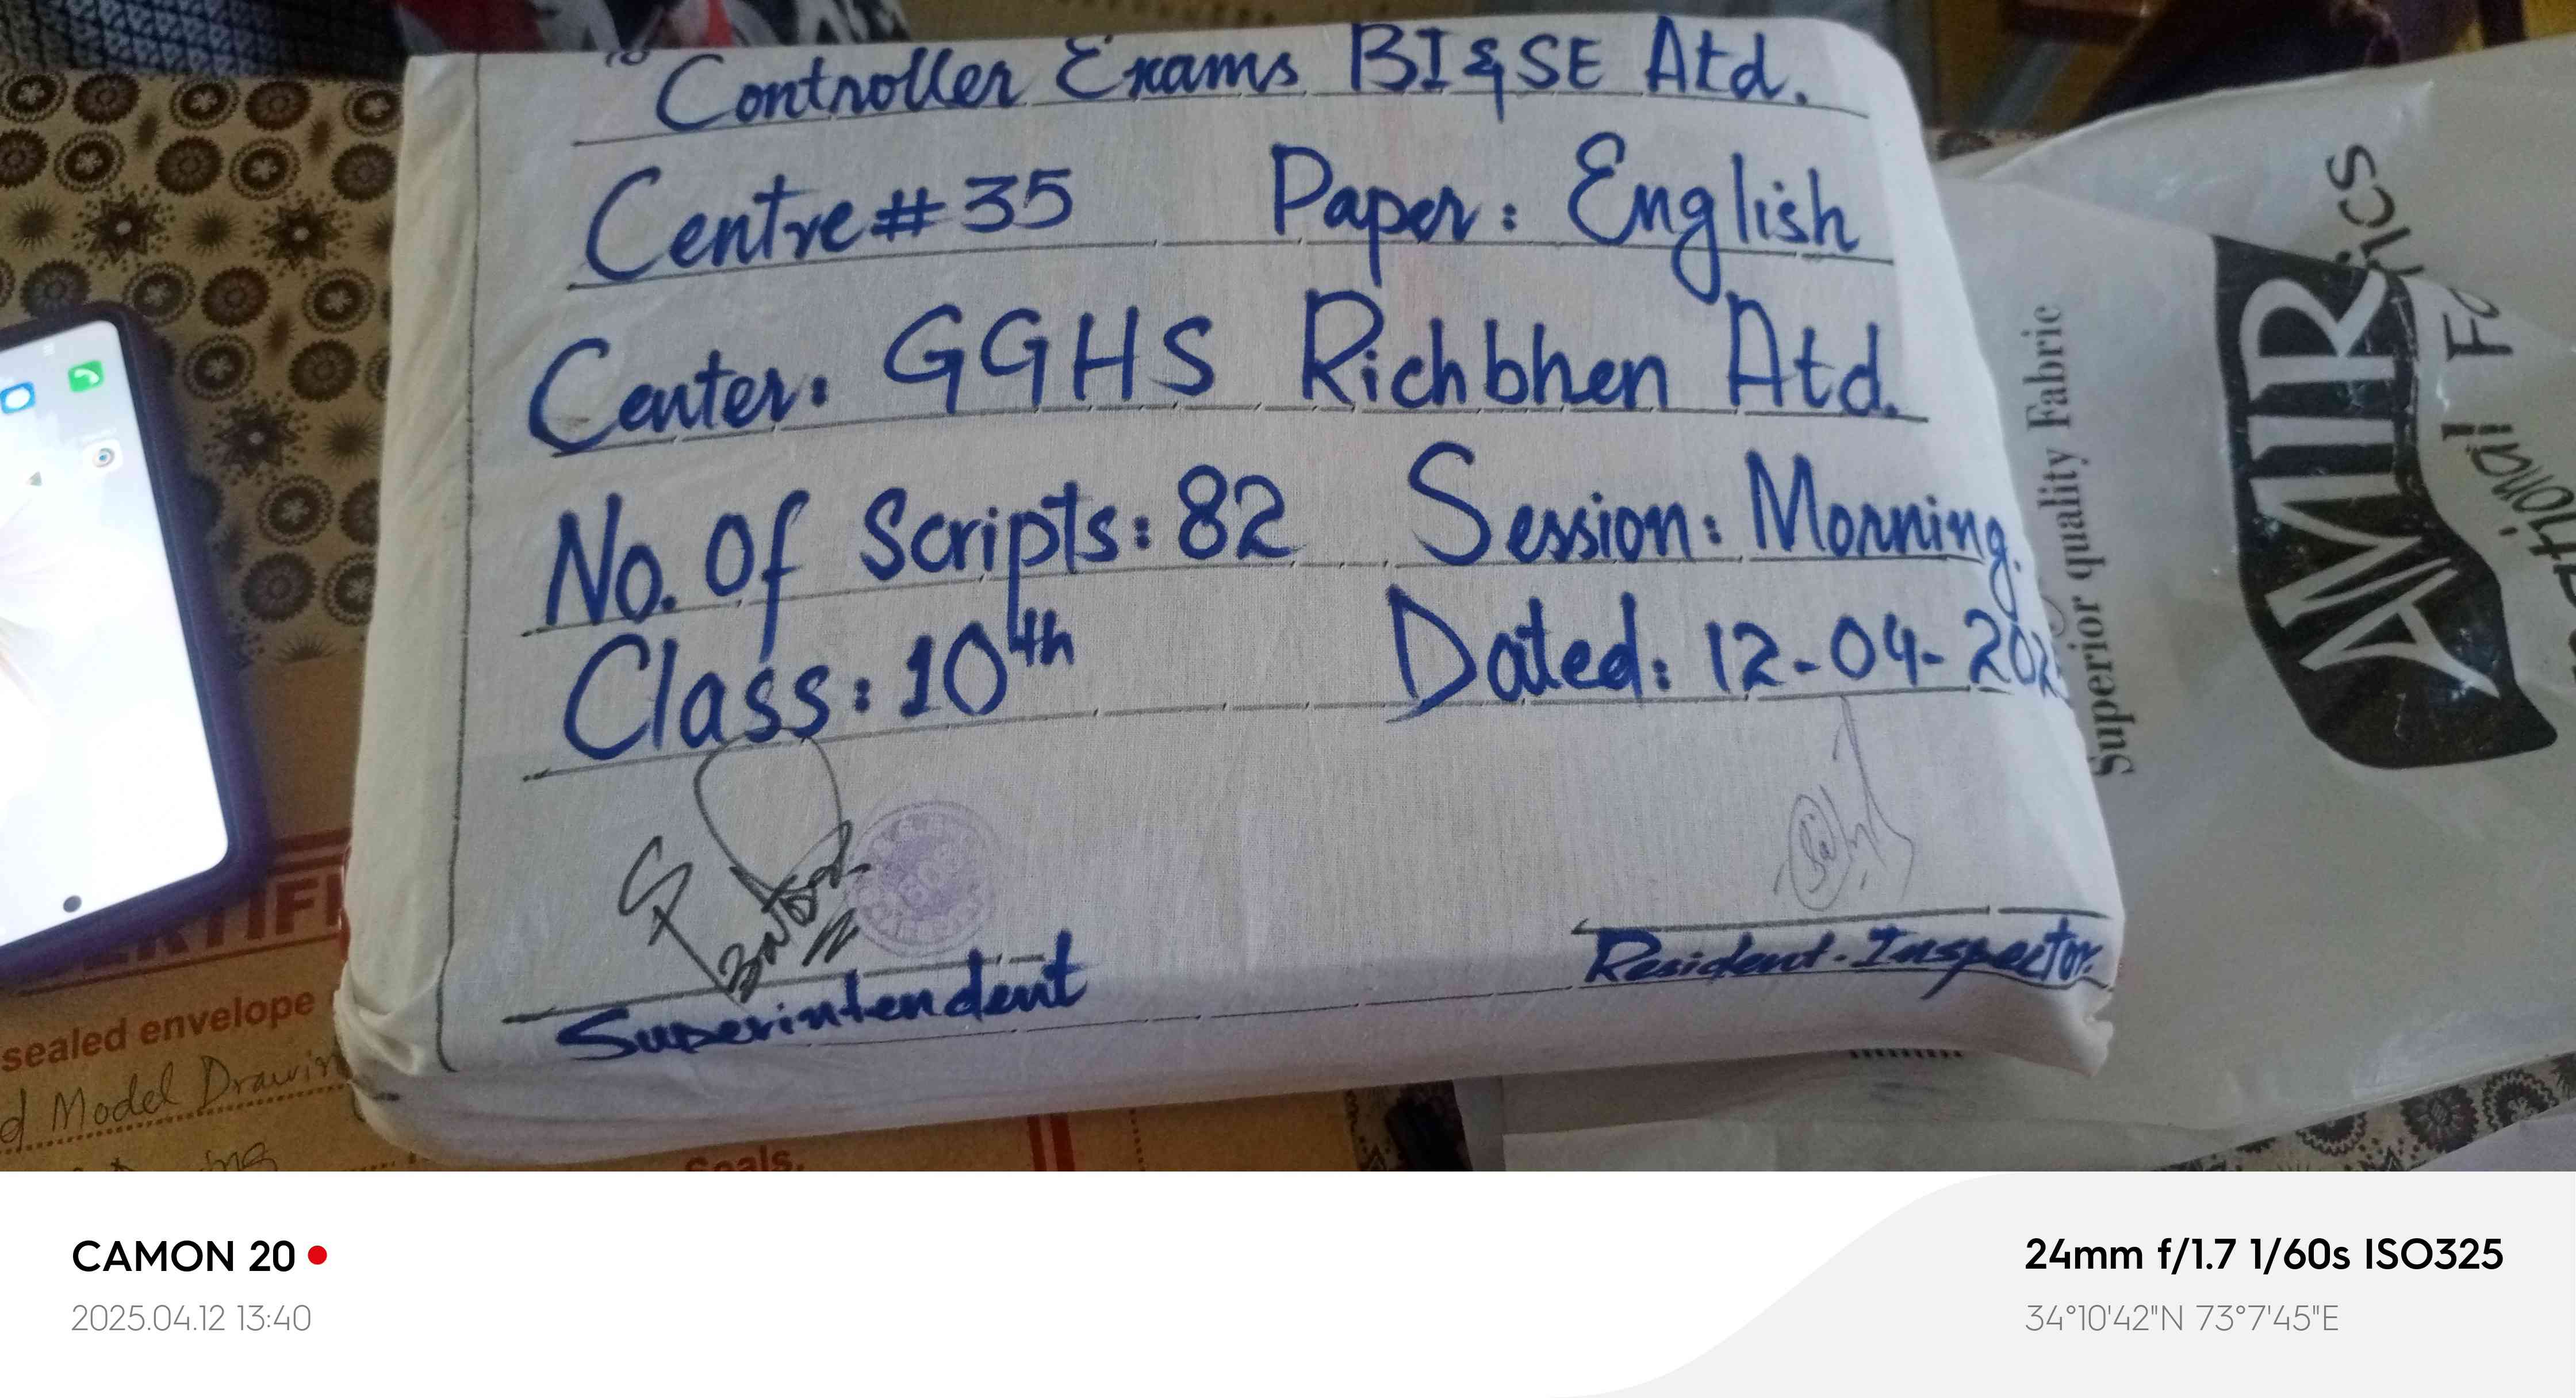 To
Controller Exams BI&SE Atd.
Centre # 35 Paper: English
Center: GGHS Richbhen Atd.
No. Of Scripts: 82 Session: Morning.
Class: 10th Dated: 12-04-202
Superintendent
Resident-Inspector.
Superior quality Fabric
AMIR
sealed envelope
d Model Drawin
Seals.
CAMON 20
2025.04.12 13:40
24mm f/1.7 1/60s ISO325
34°10'42"N 73°7'45"E